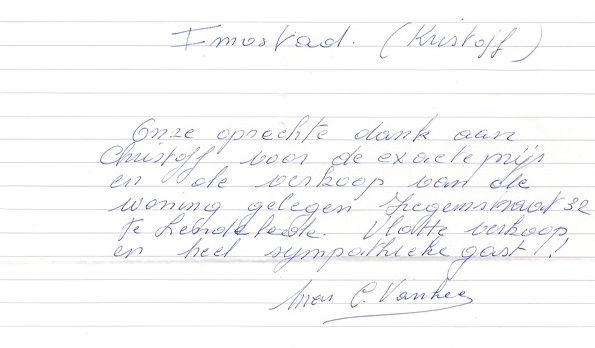 Imostad. (Kristoff)
Onze oprechte dank aan
Christoff voor de exacte prijs
en de verkoop van de
woning gelegen Izegemstraat 32
te Lendelede. Vlotte verkoop
en heel sympathieke gast!!
C. Vanhee